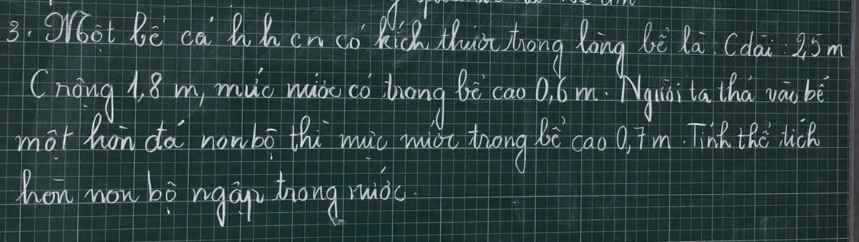 3. Một bể cá h h cn có kích thước trong lòng bể là: Cdài: 2,5 m
Crộng 1,8 m, mức nước có trong bể cao 0,6 m. Người ta thả vào bể
một hòn đá non bộ thì mực nước trong bể cao 0,7 m. Tính thể tích
hòn non bộ ngập trong nước.